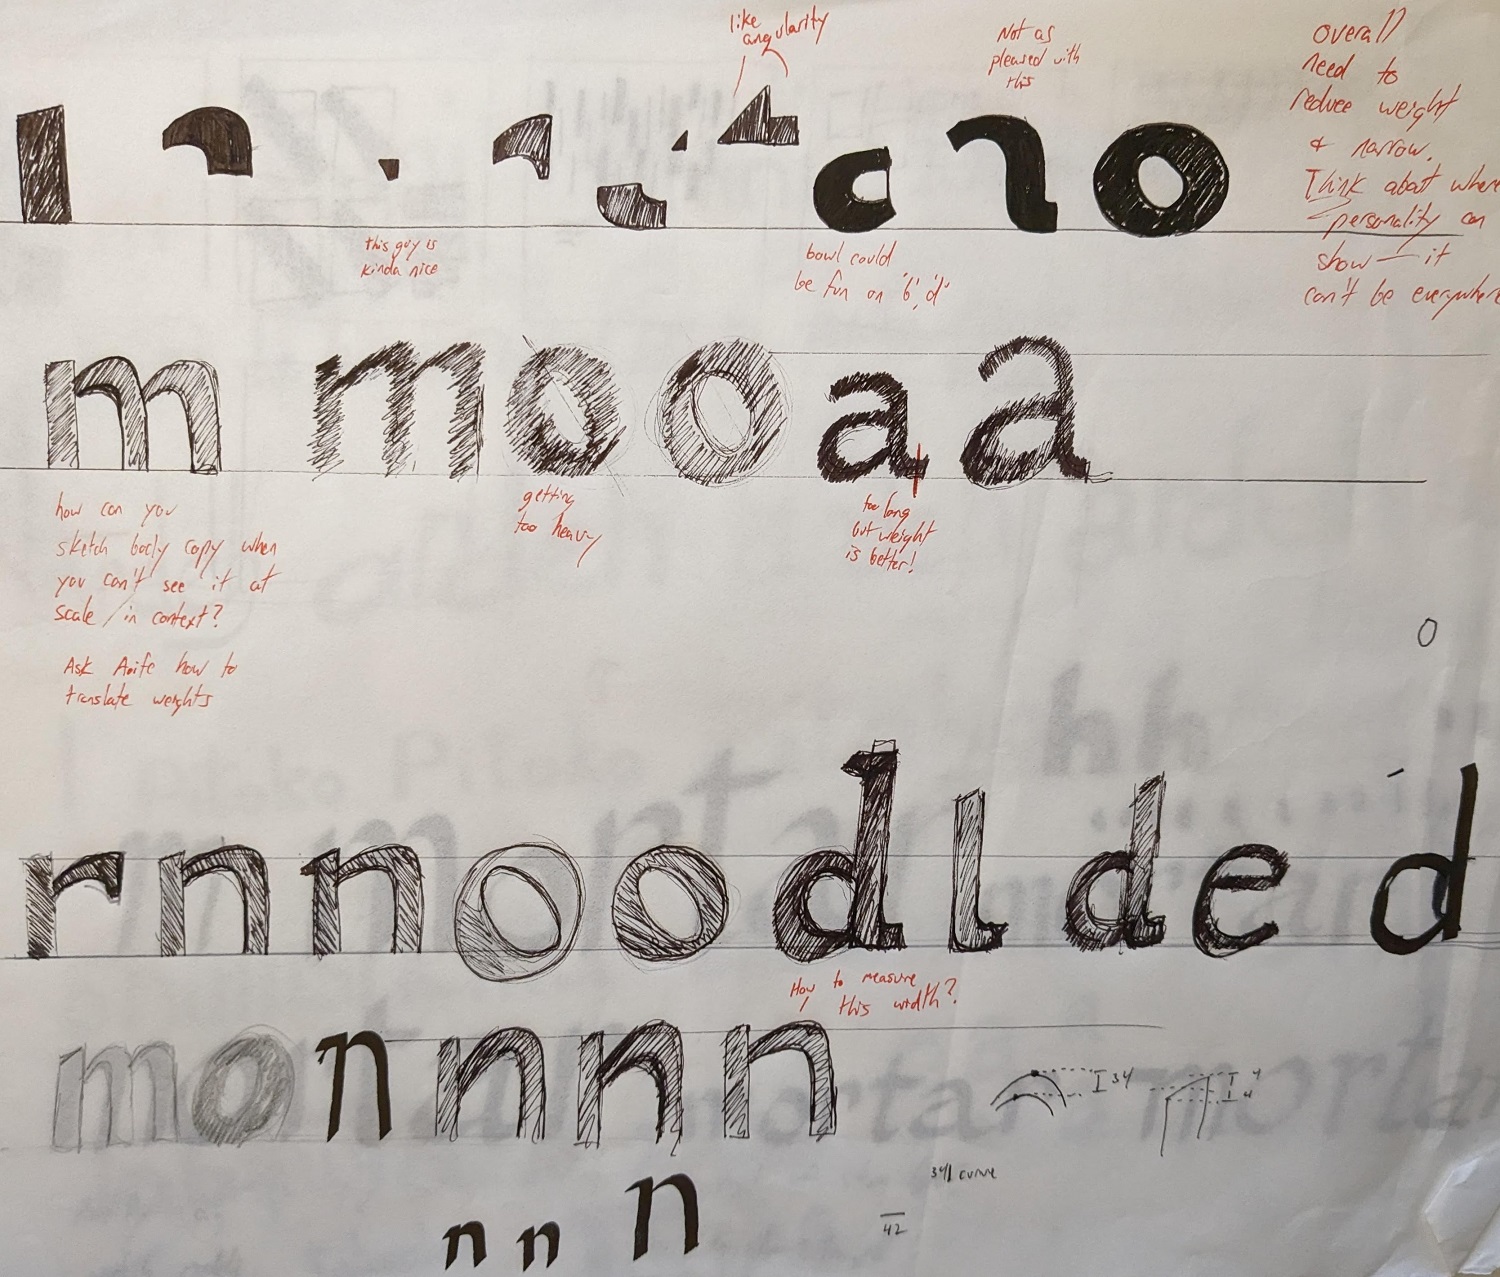 like
angularity
Not as
pleased with
this
overall
need to
reduce weight
& narrow.
Think about where
personality can
show — it
can't be everywhere
this guy is
kinda nice
bowl could
be fun on 'b', 'd'
m m o o a a
how can you
sketch body copy when
you can't see it at
scale / in context?
getting
too heavy
too long
but weight
is better!
Ask Aoife how to
translate weights
o
r n n o o d l d e d
How to measure
this width?
m o n n n n
34
4
4
341 curve
42
n n n